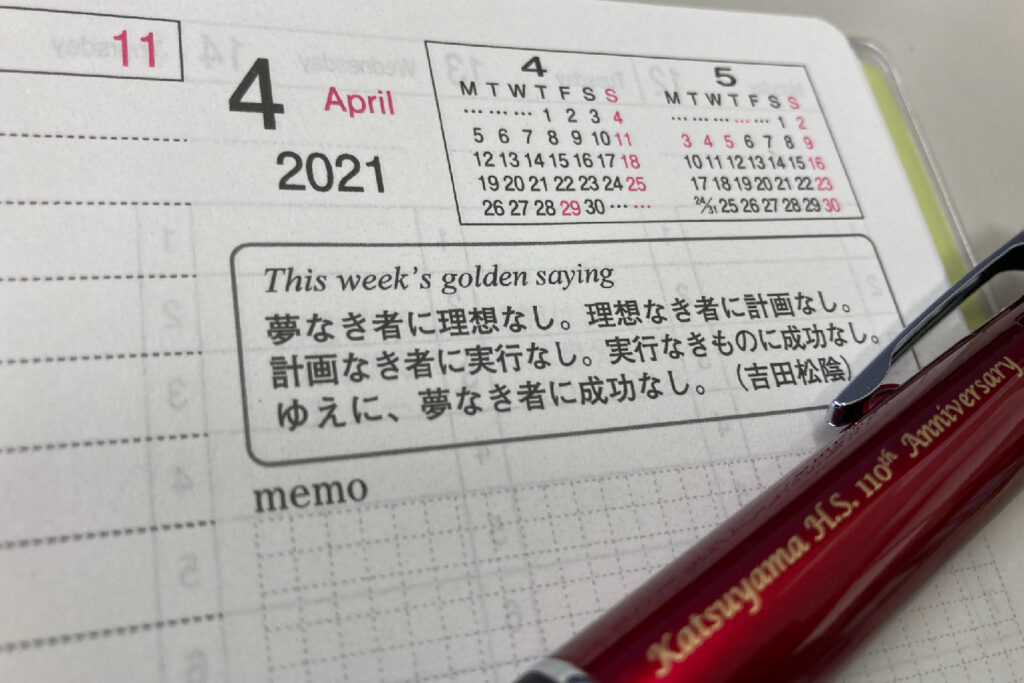 11
4 April
2021
4
M T W T F S S
… … … 1 2 3 4
5 6 7 8 9 10 11
12 13 14 15 16 17 18
19 20 21 22 23 24 25
26 27 28 29 30 … …
5
M T W T F S S
… … … … … 1 2
3 4 5 6 7 8 9
10 11 12 13 14 15 16
17 18 19 20 21 22 23
24/31 25 26 27 28 29 30
This week's golden saying
夢なき者に理想なし。理想なき者に計画なし。
計画なき者に実行なし。実行なきものに成功なし。
ゆえに、夢なき者に成功なし。（吉田松陰）
memo
Katsuyama H.S. 110th Anniversary